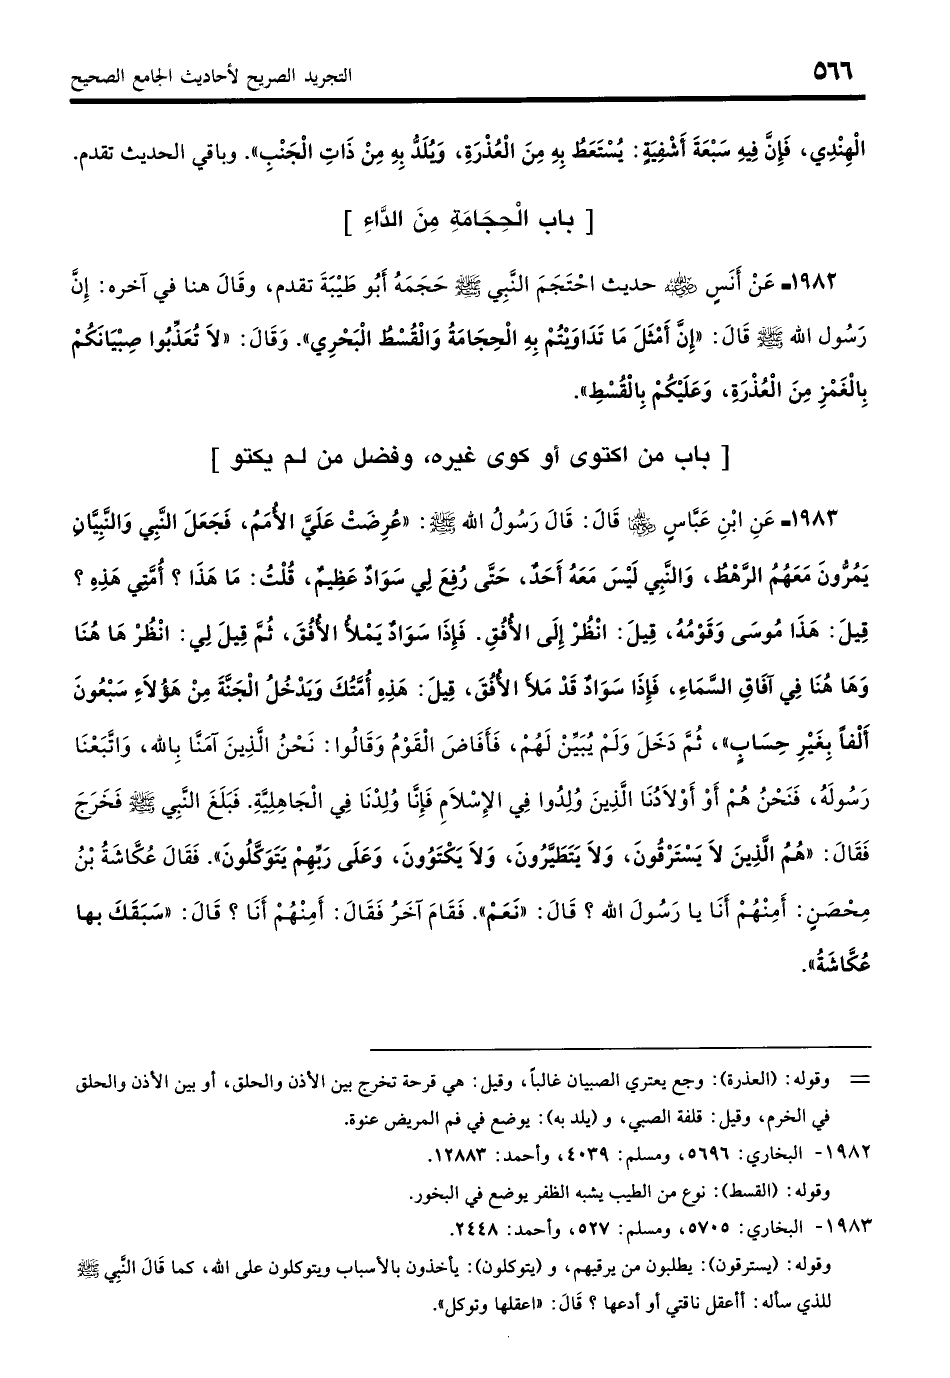 ٥٦٦ التجريد الصريح لأحاديث الجامع الصحيح
الْهِنْدِي، فَإِنَّ فِيهِ سَبْعَةَ أَشْفِيَةٍ: يُسْتَعَطُ بِهِ مِنَ الْعُذْرَةِ، وَيُلَدُّ بِهِ مِنْ ذَاتِ الْجَنْبِ». وباقي الحديث تقدم.
[ باب الْحِجَامَةِ مِنَ الدَّاءِ ]
١٩٨٢ـ عَنْ أَنَسٍ ﵁ حديث احْتَجَمَ النَّبي ﷺ حَجَمَهُ أَبُو طَيْبَةَ تقدم، وقَالَ هنا في آخره: إنَّ
رَسُول الله ﷺ قَالَ: «إِنَّ أَمْثَلَ مَا تَدَاوَيْتُمْ بِهِ الْحِجَامَةُ وَالْقُسْطُ الْبَحْرِي». وَقَالَ: «لاَ تُعَذِّبُوا صِبْيَانَكُمْ
بِالْغَمْزِ مِنَ الْعُذْرَةِ، وَعَلَيْكُمْ بِالْقُسْطِ».
[ باب من اكتوى أو كوى غيره، وفضل من لم يكتو ]
١٩٨٣ـ عَنِ ابْنِ عَبَّاسٍ ﵄ قَالَ: قَالَ رَسُولُ الله ﷺ: «عُرِضَتْ عَلَيَّ الأُمَمُ، فَجَعَلَ النَّبِي وَالنَّبِيَّانِ
يَمُرُّونَ مَعَهُمُ الرَّهْطُ، وَالنَّبِي لَيْسَ مَعَهُ أَحَدٌ، حَتَّى رُفِعَ لِي سَوَادٌ عَظِيمٌ، قُلْتُ: مَا هَذَا ؟ أُمَّتِي هَذِهِ ؟
قِيلَ: هَذَا مُوسَى وَقَوْمُهُ، قِيلَ: انْظُرْ إِلَى الأُفُقِ. فَإِذَا سَوَادٌ يَمْلأُ الأُفُقَ، ثُمَّ قِيلَ لِي: انْظُرْ هَا هُنَا
وَهَا هُنَا فِي آفَاقِ السَّمَاءِ، فَإِذَا سَوَادٌ قَدْ مَلأَ الأُفُقَ، قِيلَ: هَذِهِ أُمَّتُكَ وَيَدْخُلُ الْجَنَّةَ مِنْ هَؤُلاَءِ سَبْعُونَ
أَلْفاً بِغَيْرِ حِسَابٍ»، ثُمَّ دَخَلَ وَلَمْ يُبَيِّنْ لَهُمْ، فَأَفَاضَ الْقَوْمُ وَقَالُوا: نَحْنُ الَّذِينَ آمَنَّا بِالله، وَاتَّبَعْنَا
رَسُولَهُ، فَنَحْنُ هُمْ أَوْ أَوْلاَدُنَا الَّذِينَ وُلِدُوا فِي الإِسْلاَمِ فَإِنَّا وُلِدْنَا فِي الْجَاهِلِيَّةِ. فَبَلَغَ النَّبِي ﷺ فَخَرَجَ
فَقَالَ: «هُمُ الَّذِينَ لاَ يَسْتَرْقُونَ، وَلاَ يَتَطَيَّرُونَ، وَلاَ يَكْتَوُونَ، وَعَلَى رَبِّهِمْ يَتَوَكَّلُونَ». فَقَالَ عُكَّاشَةُ بْنُ
مِحْصَنٍ: أَمِنْهُمْ أَنَا يا رَسُولَ الله ؟ قَالَ: «نَعَمْ». فَقَامَ آخَرُ فَقَالَ: أَمِنْهُمْ أَنَا ؟ قَالَ: «سَبَقَكَ بها
عُكَّاشَةُ».
= وقوله: (العذرة): وجع يعتري الصبيان غالباً، وقيل: هي قرحة تخرج بين الأذن والحلق، أو بين الأذن والحلق
في الخرم، وقيل: قلفة الصبي، و (يلد به): يوضع في فم المريض عنوة.
١٩٨٢- البخاري: ٥٦٩٦، ومسلم: ٤٠٣٩، وأحمد: ١٢٨٨٣.
وقوله: (القسط): نوع من الطيب يشبه الظفر يوضع في البخور.
١٩٨٣- البخاري: ٥٧٠٥، ومسلم: ٥٢٧، وأحمد: ٢٤٤٨.
وقوله: (يسترقون): يطلبون من يرقيهم، و (يتوكلون): يأخذون بالأسباب ويتوكلون على الله، كما قَالَ النَّبي ﷺ
للذي سأله: أأعقل ناقتي أو أدعها ؟ قَالَ: «اعقلها وتوكل».